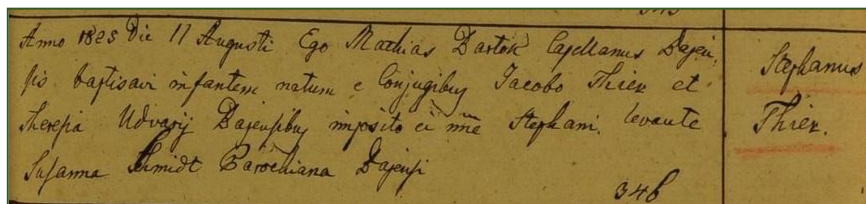 Anno 1825 Die 11 Augusti Ego Mathias Bartok Capellanus Bajen
sis baptisavi infantem natum e Conjugibus Jacobo Thier et
Theresia Udvarÿ Bajensibus imposito ei nne Stephani, levante
Susanna Schmidt Parochiana Bajensi
346
Stephanus
Thier.